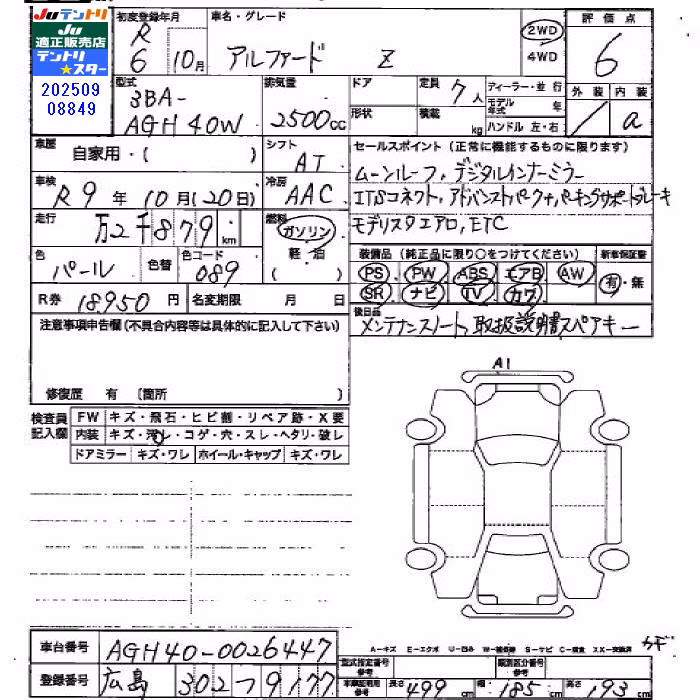 JUテントリ
JU
適正販売店
テントリ
★スター
202509
08849
初度登録年月
R
6 10月
車名・グレード
アルファード Z
2WD
4WD
評価点
6
型式
3BA-
AGH40W
排気量
2500cc
ドア
形状
定員 7人
積載 kg
ディーラー・並行
モデル年式 年
ハンドル 左・右
外装 内装
/ a
車歴
自家用・( )
シフト
AT
セールスポイント (正常に機能するものに限ります)
ムーンルーフ,デジタルインナーミラー
ITSコネクト,アドバンストパーク+パーキングサポートブレーキ
モデリスタエアロ,ETC
車検
R9年10月(20日)
冷房
AAC
走行
万2千879km
燃料
ガソリン
軽・油
( )
色
パール
色替
色コード
089
装備品 (純正品に限り○をつけてください)
PS PW ABS エアB AW
SR ナビ TV カワ
新車保証書
有・無
R券 18950円
名変期限 月 日
後日品
メンテナンスノート,取扱説明書スペアキー
注意事項申告欄(不具合内容等は具体的に記入して下さい)
修復歴 有 〔箇所 〕
検査員
記入欄
FW キズ・飛石・ヒビ割・リペア跡・X要
内装 キズ・汚レ・コゲ・穴・スレ・ヘタリ・破レ
ドアミラー キズ・ワレ ホイール・キャップ キズ・ワレ
A1
車台番号 AGH40-0026447
登録番号 広島 302 ラ 9177
A-キズ E-エクボ U-凹み W-補修跡 S-サビ C-腐食 XX-交換済
カギ
型式指定番号
参考
類別区分番号
参考
車輌証明用
参考
長さ 499cm
幅 185cm
高さ 193cm